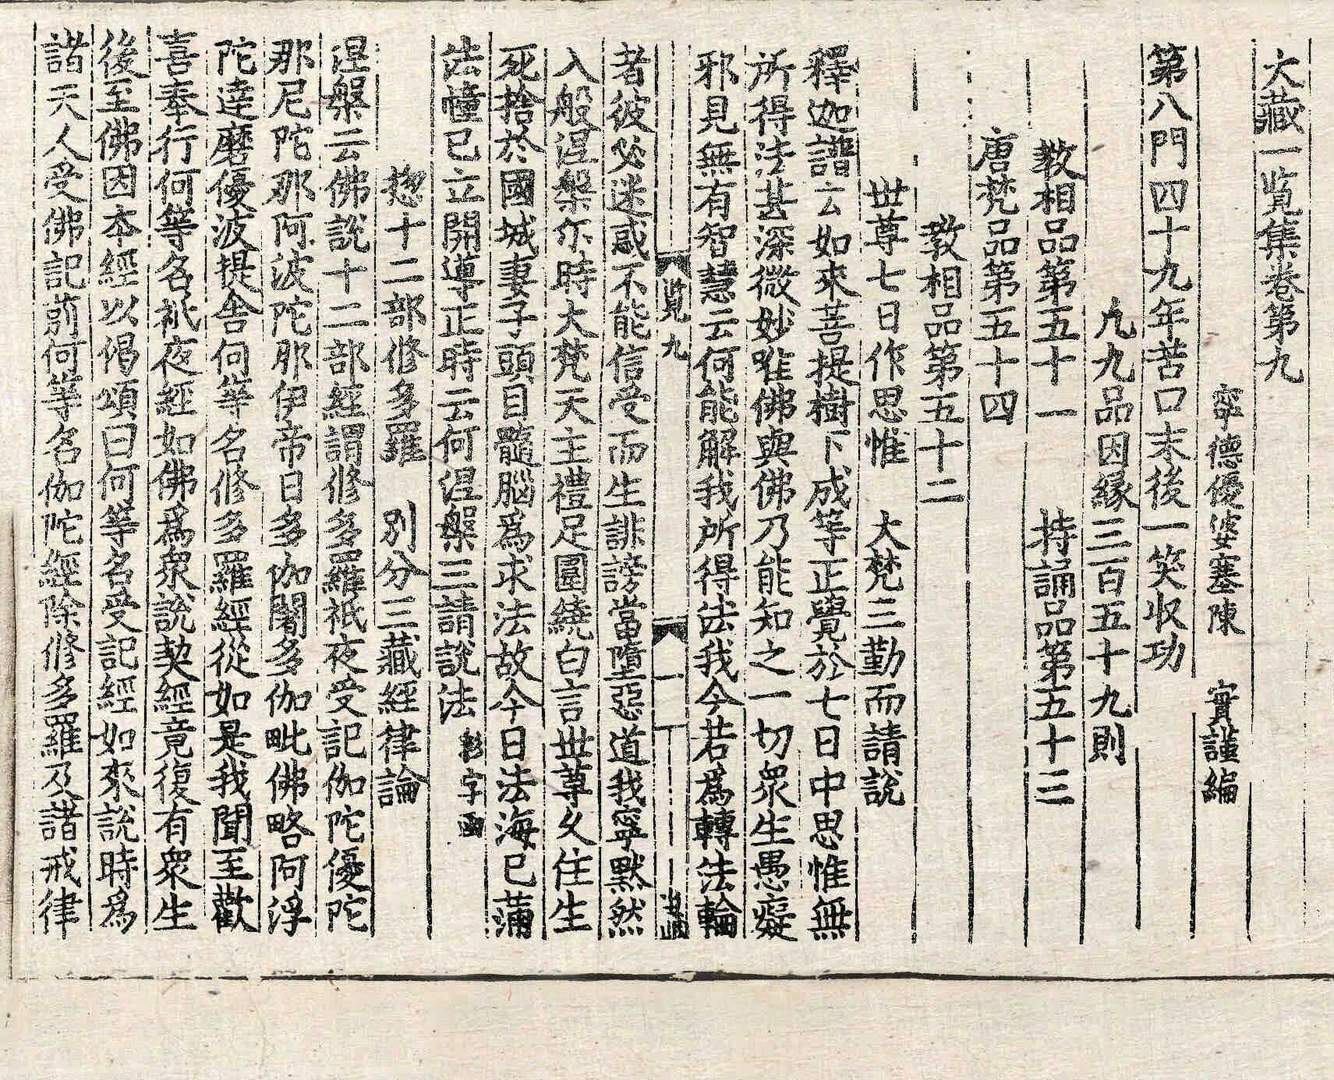 大藏一覧集卷第九
寧德優婆塞陳　實謹編
第八門四十九年苦口末後一笑収功
凢九品因縁三百五十九則
教相品第五十一　持誦品第五十三
唐梵品第五十四
教相品第五十二
世尊七日作思惟　大梵三勤而請說
釋迦譜云如來菩提樹下成等正覺於七日中思惟無
所得法甚深微妙唯佛與佛乃能知之一切衆生愚癡
邪見無有智慧云何能解我所得法我今若爲轉法輪
覧九　一
者彼必迷惑不能信受而生誹謗當墮惡道我寧默然
入般涅槃尓時大梵天主禮足圍繞白言世尊久住生
死捨於國城妻子頭目髓腦爲求法故今日法海已滿
法幢已立開導正時云何涅槃三請說法
揔十二部修多羅　別分三藏經律論
涅槃云佛說十二部經謂修多羅祇夜受記伽陀優陀
那尼陀那阿波陀那伊帝日多伽闍多伽毗佛略阿浮
陀達磨優波提舍何等名修多羅經從如是我聞至歡
喜奉行何等名祇夜經如佛爲衆說契經竟復有衆生
後至佛因本經以偈頌曰何等名受記經如來說時爲
諸天人受佛記莂何等名伽陀經除修多羅及諸戒律